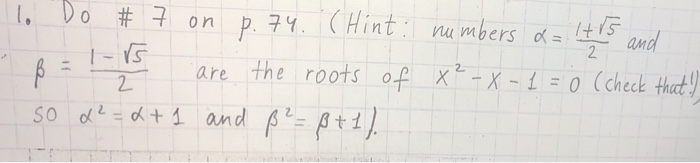 1. Do # 7 on p. 74. (Hint: numbers α = (1+√5)/2 and
β = (1-√5)/2 are the roots of x² - x - 1 = 0 (check that!)
so α² = α + 1 and β² = β + 1).